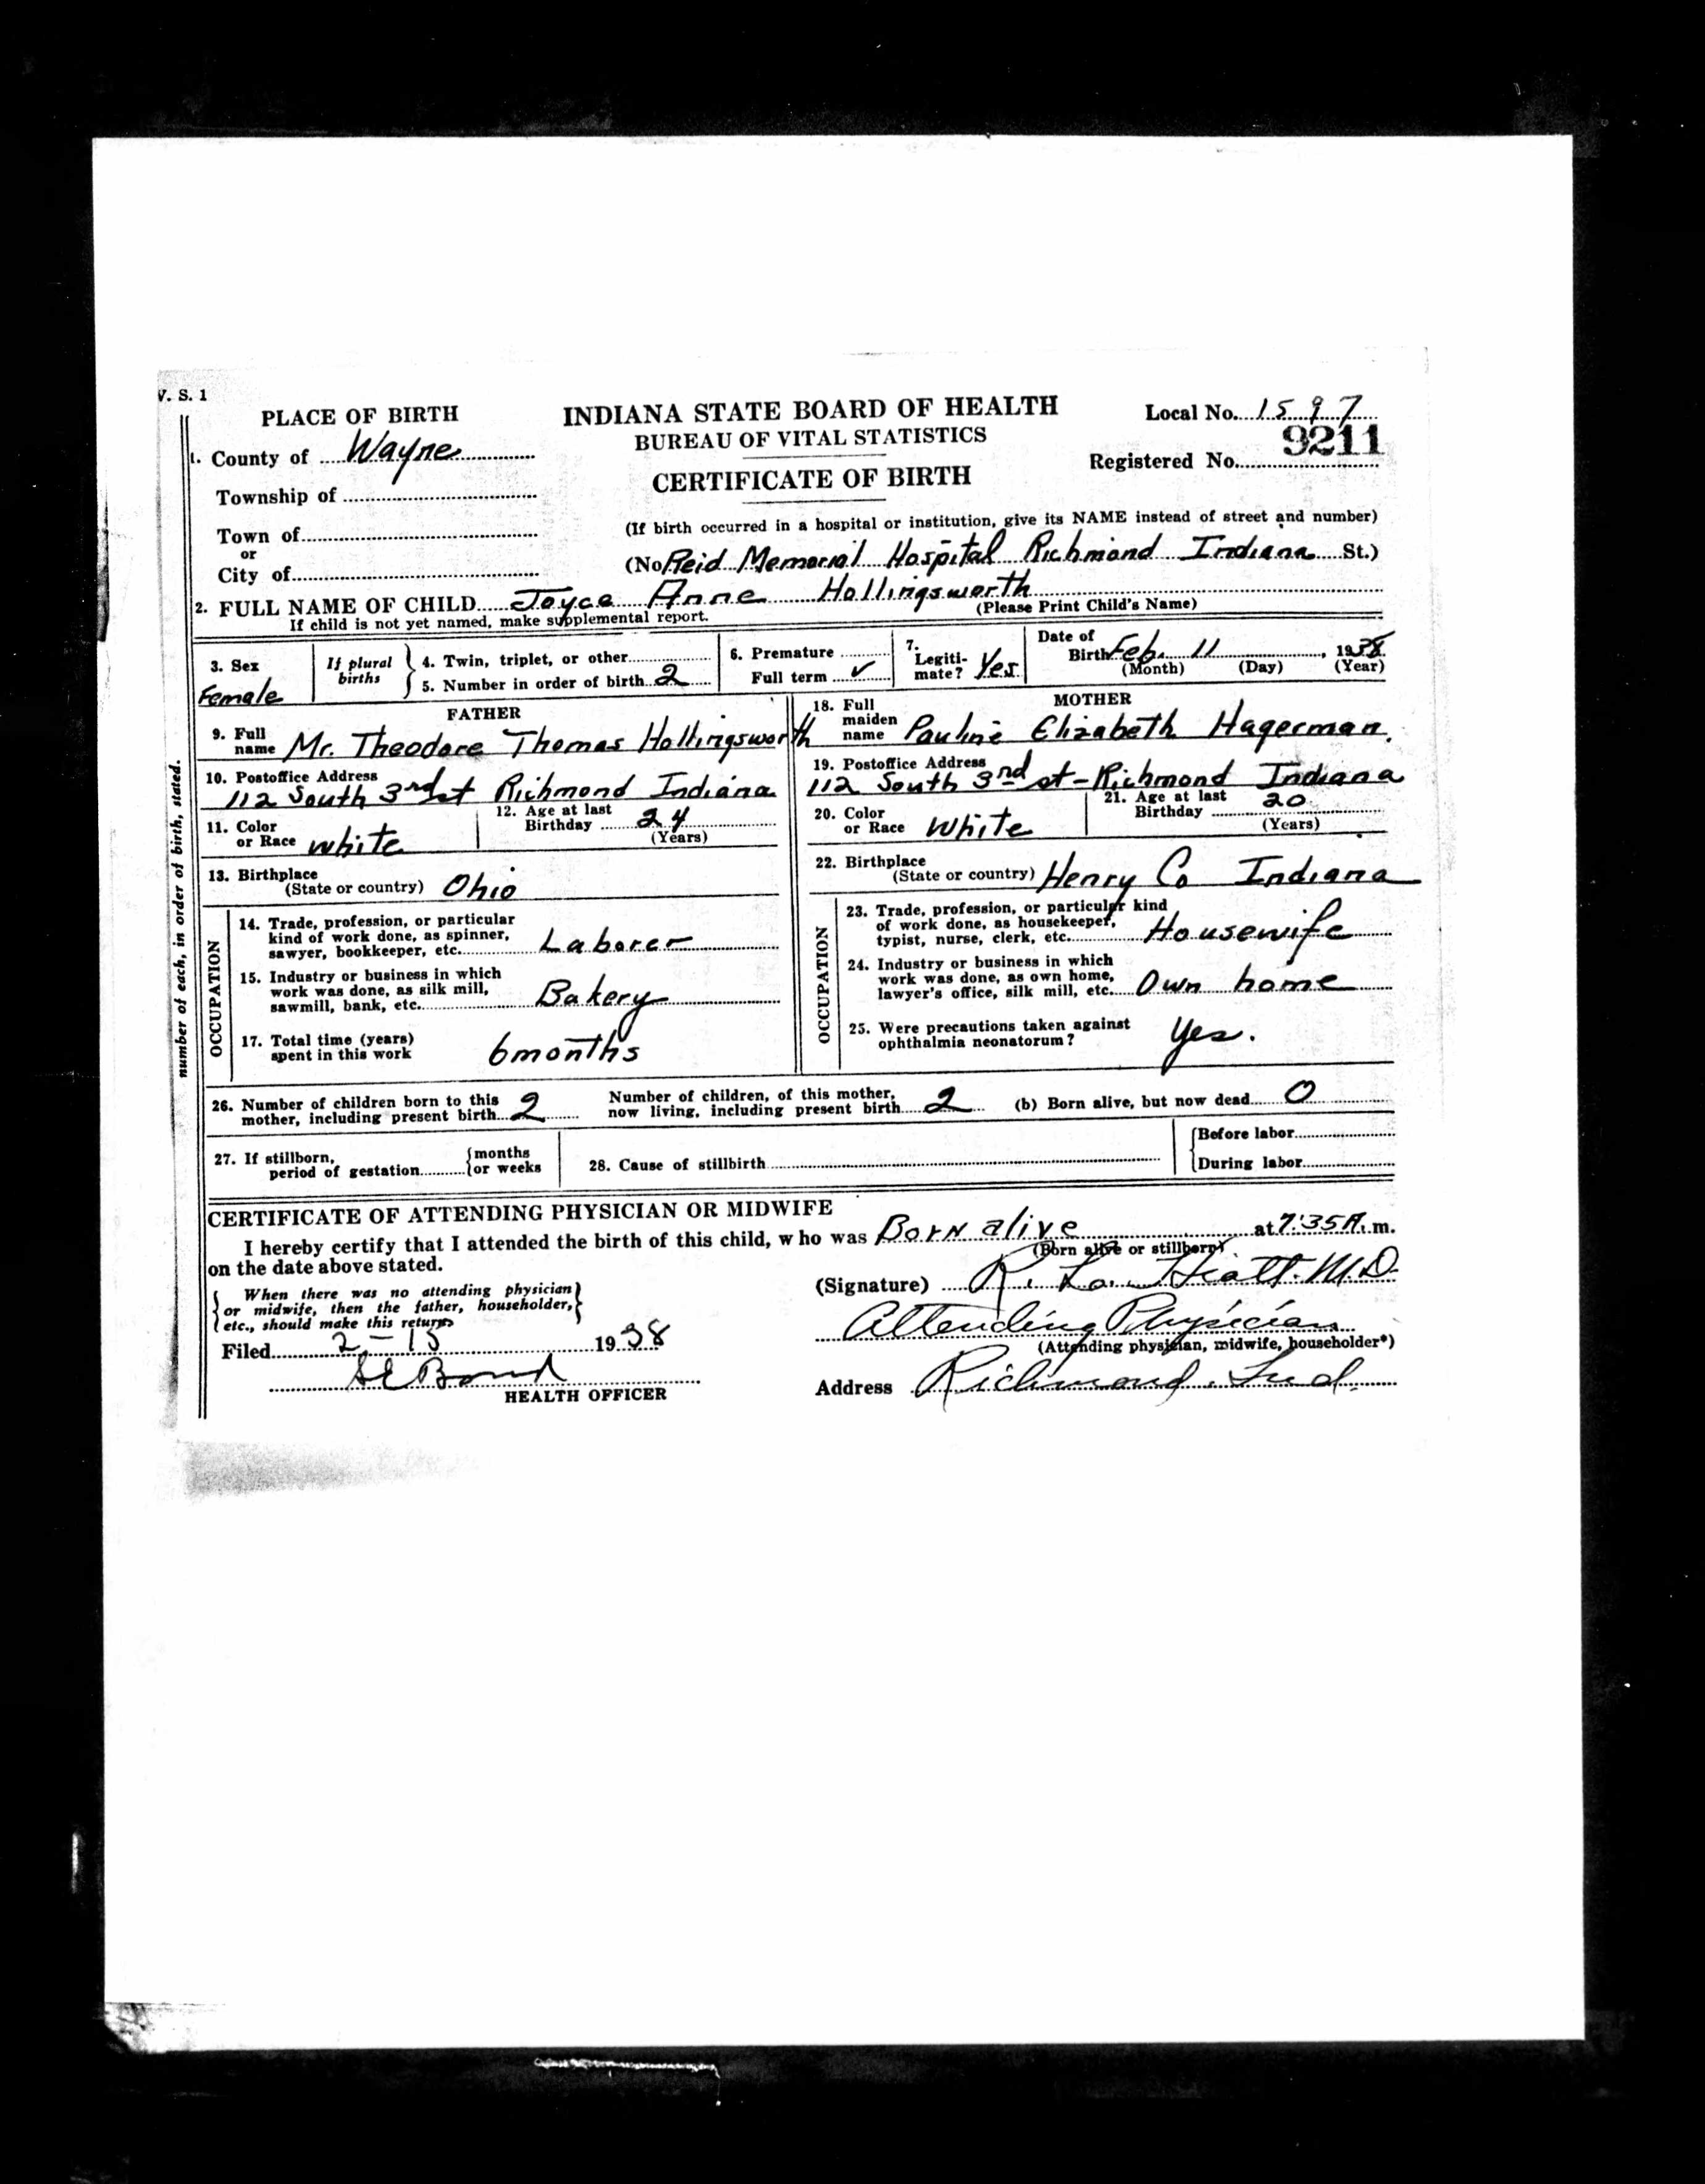 V. S. 1
PLACE OF BIRTH
INDIANA STATE BOARD OF HEALTH
Local No. 1597
1. County of Wayne
BUREAU OF VITAL STATISTICS
9211
Registered No.
Township of
CERTIFICATE OF BIRTH
Town of
(If birth occurred in a hospital or institution, give its NAME instead of street and number)
or
City of
(No Reid Memorial Hospital Richmond Indiana St.)
2. FULL NAME OF CHILD Joyce Anne Hollingsworth
(Please Print Child's Name)
If child is not yet named, make supplemental report.
3. Sex
Female
If plural births
4. Twin, triplet, or other
5. Number in order of birth 2
6. Premature
Full term ✓
7. Legiti-
mate? Yes.
Date of
Birth Feb. 11, 1938
(Month) (Day) (Year)
number of each, in order of birth, stated.
FATHER
9. Full
name Mr. Theodore Thomas Hollingsworth
10. Postoffice Address
112 South 3rd st Richmond Indiana
11. Color
or Race white
12. Age at last
Birthday 24
(Years)
13. Birthplace
(State or country) Ohio
OCCUPATION
14. Trade, profession, or particular
kind of work done, as spinner,
sawyer, bookkeeper, etc. Laborer
15. Industry or business in which
work was done, as silk mill,
sawmill, bank, etc. Bakery
17. Total time (years)
spent in this work 6 months
MOTHER
18. Full
maiden
name Pauline Elizabeth Hagerman.
19. Postoffice Address
112 South 3rd st - Richmond Indiana
20. Color
or Race White
21. Age at last
Birthday 20
(Years)
22. Birthplace
(State or country) Henry Co Indiana
OCCUPATION
23. Trade, profession, or particular kind
of work done, as housekeeper,
typist, nurse, clerk, etc. Housewife
24. Industry or business in which
work was done, as own home,
lawyer's office, silk mill, etc. Own home
25. Were precautions taken against
ophthalmia neonatorum? Yes.
26. Number of children born to this
mother, including present birth 2
Number of children, of this mother,
now living, including present birth 2
(b) Born alive, but now dead 0
27. If stillborn,
period of gestation
months
or weeks
28. Cause of stillbirth
Before labor
During labor
CERTIFICATE OF ATTENDING PHYSICIAN OR MIDWIFE
I hereby certify that I attended the birth of this child, who was Born alive at 7:35 A. m.
(Born alive or stillborn)
on the date above stated.
When there was no attending physician
or midwife, then the father, householder,
etc., should make this return
(Signature) R. L. Hiatt. M.D.
Attending Physician
(Attending physician, midwife, householder*)
Filed 2-15 1938
S E Bond
HEALTH OFFICER
Address Richmond, Ind.